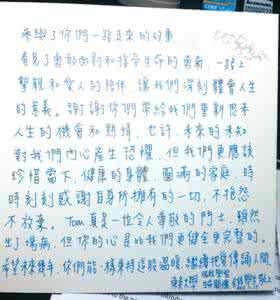 參與了你們一路走來的故事
看見了勇敢面對和接受生命的勇氣,一路上
摯親和愛人的陪伴,讓我們深刻體會人生
的意義。謝謝你們帶給我們重新思考
人生的機會和熱情,也許,未來的未知
對我們內心產生恐懼,但我們更應該
珍惜當下,健康的身體、圓滿的家庭,時
時刻刻感謝自身所擁有的一切,不抱怨
不放棄。Tom真是一位令人尊敬的鬥士,雖然
生了場病,但你的心是比我們更健全更完整的。
希望未來幾年,你們能 秉持這股溫暖,繼續把愛傳給人間。
東 大學
敬上